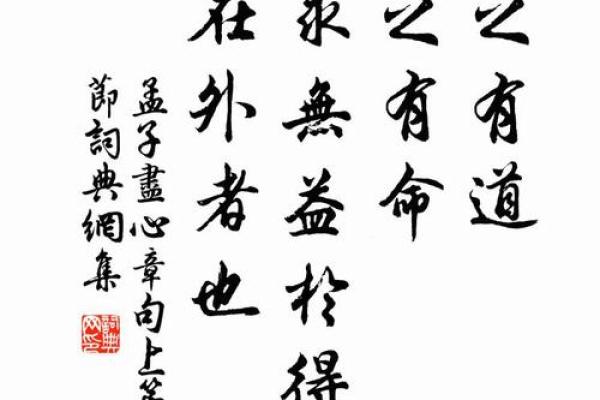 之有道
之有命
求無益於得
在外者也
孟子盡心章句上第
節詞典網集
詞典网印